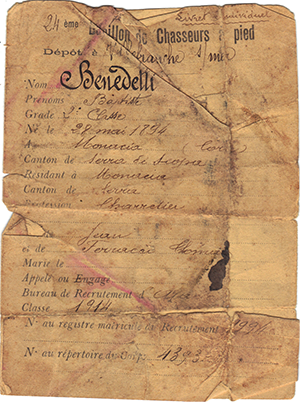 Livret individuel
24ème Bataillon de Chasseurs à pied
Dépôt à Villefranche s/mer
Nom Benedetti
Prénoms
Grade 2e Classe
Né le 28 mai 1894
A Monacia (Corse
Canton de Serra di Scopa
Résidant à Monacia
Canton de Serra
Profession Charretier
Jean
et de
Marié le
Appelé ou Engagé
Bureau de Recrutement d'
Classe 1914
N° au registre matricule du Recrutement
N° au répertoire du Corps 4393